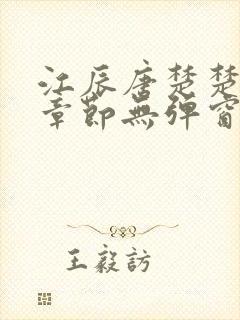 江辰唐楚楚
章節無彈窗
王毅訪